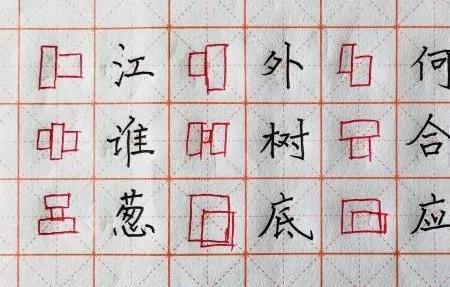 江 外 何
谁 树 合
葱 底 应